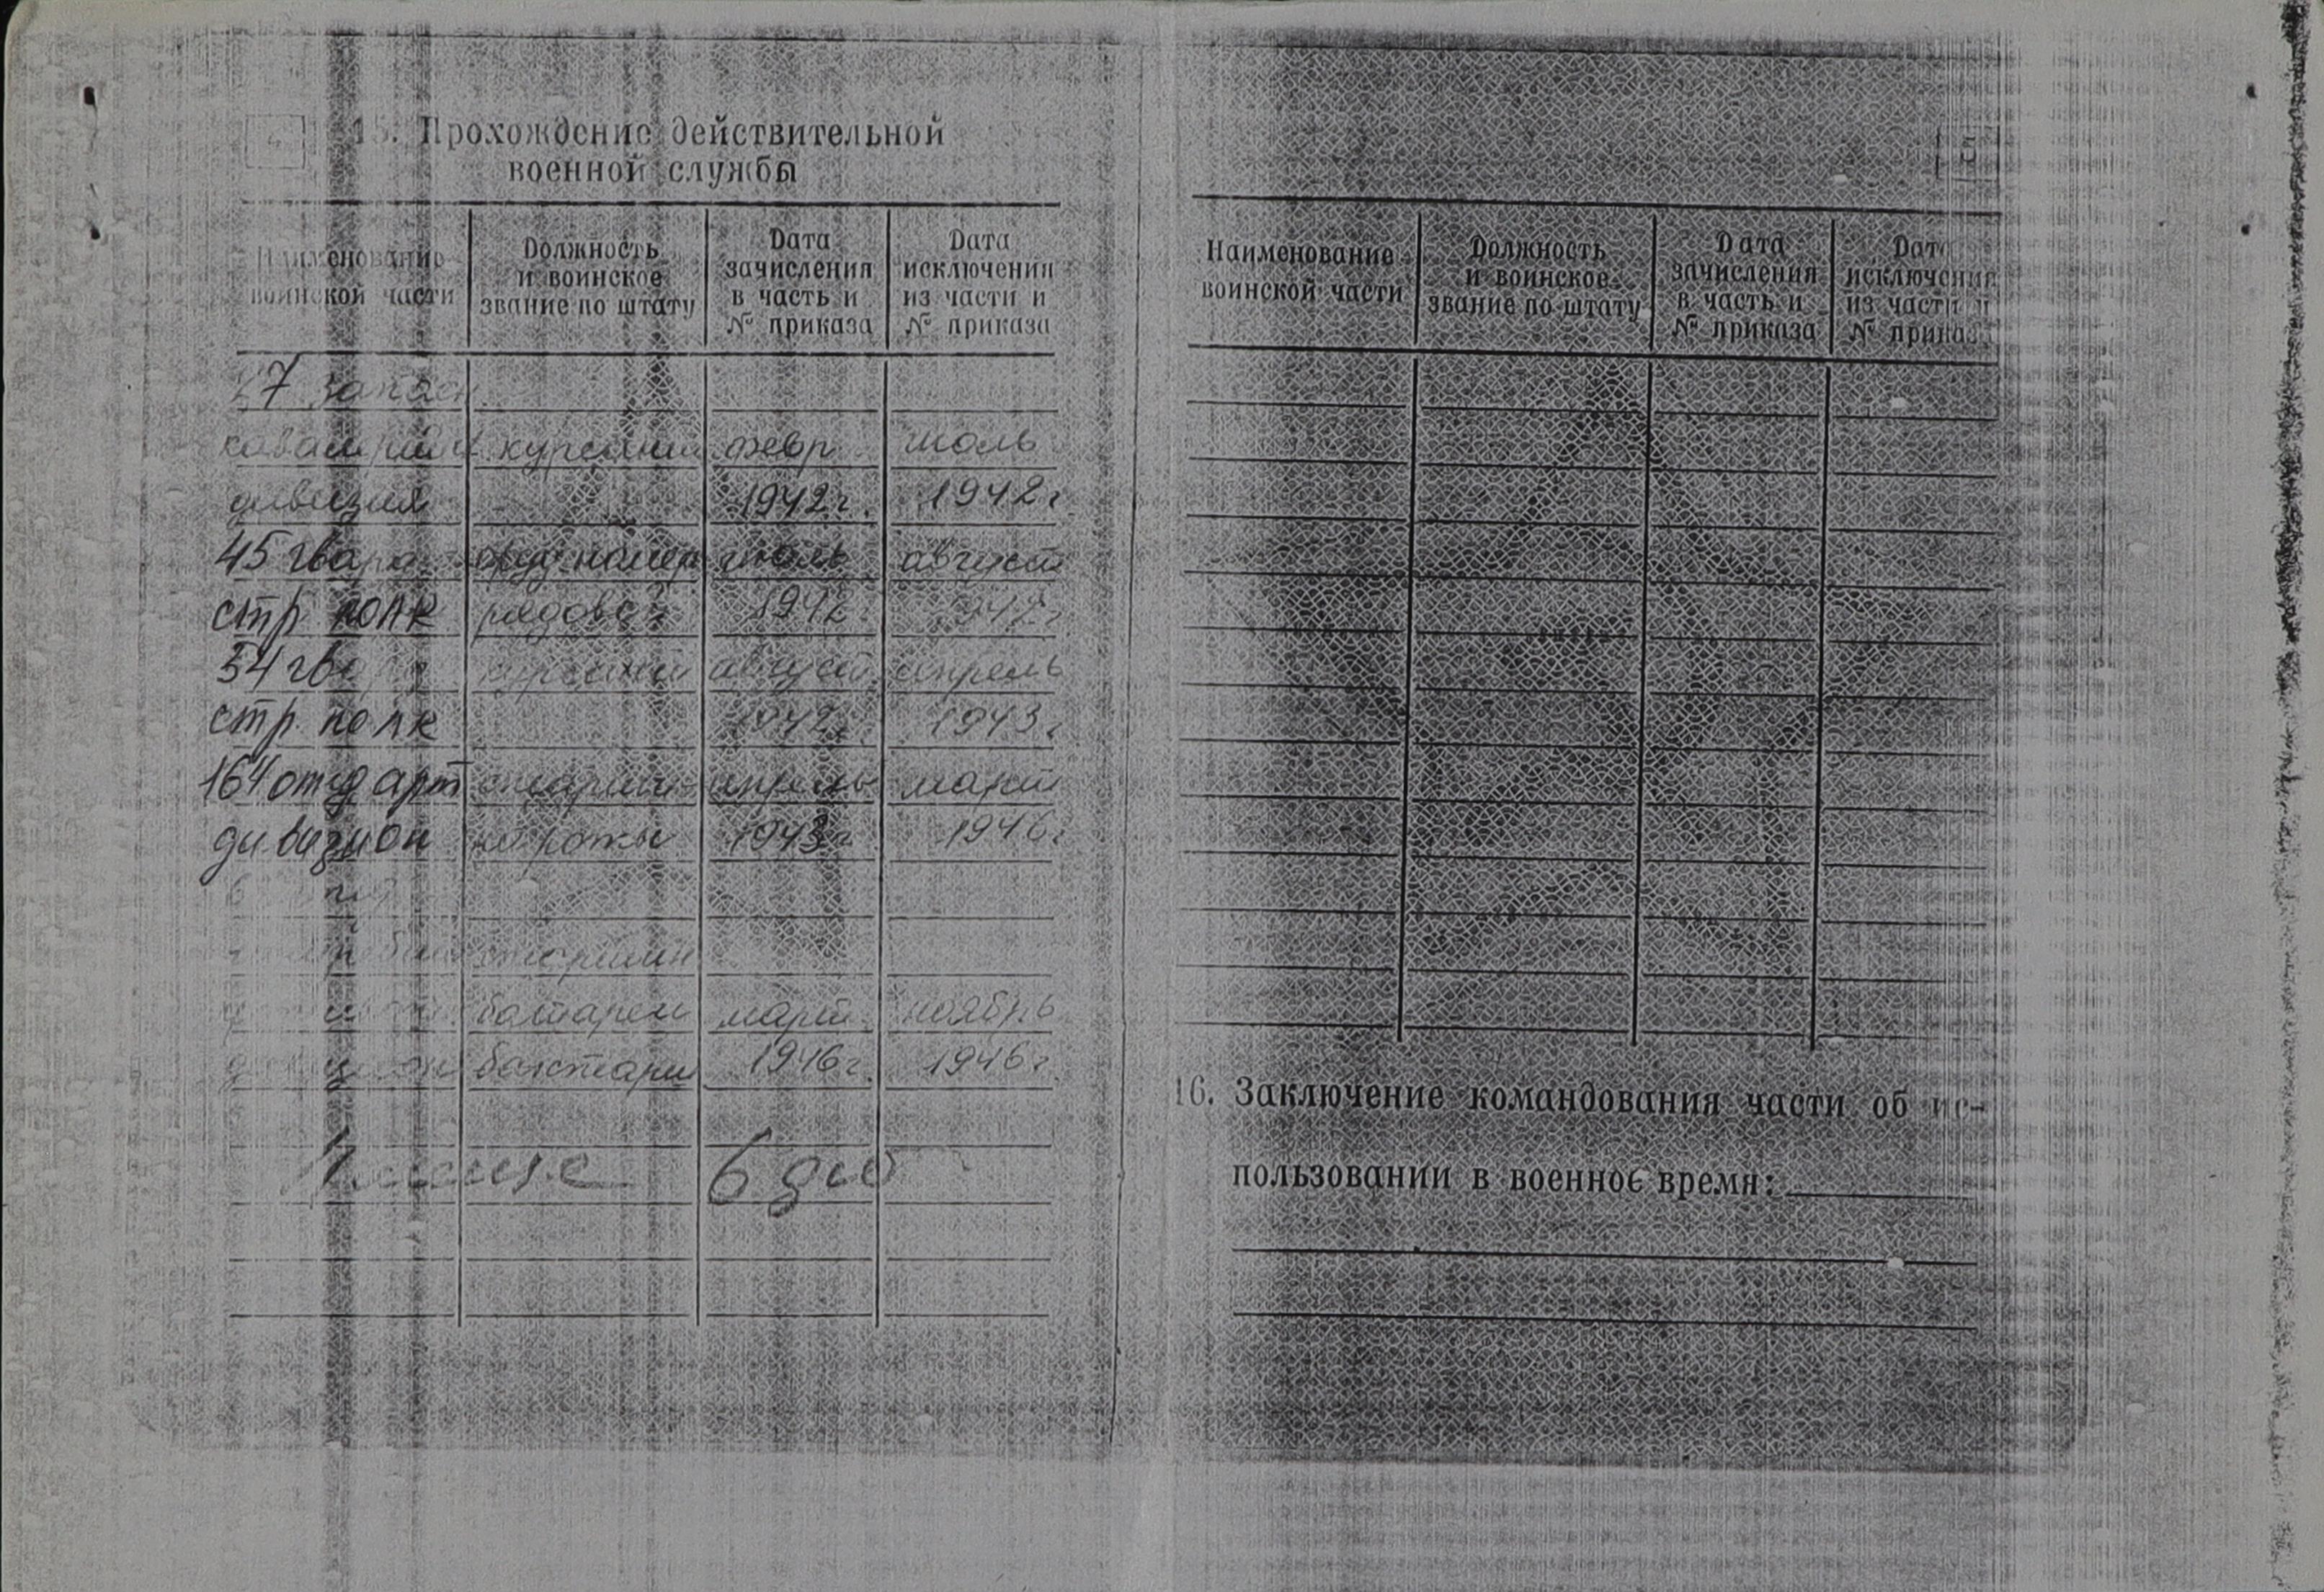 15. Прохождение действительной
военной службы
Наименование
воинской части
Должность
и воинское
звание по штату
Дата
зачисления
в часть и
№ приказа
Дата
исключения
из части и
№ приказа
27 запасн
кавалерийск курсант февр июль
дивизия 1942 г. 1942 г
45 гвард. оруд. номер июль август
стр полк рядовой 1942 1942 г
54 гвард курсант август апрель
стр. полк 1942 г. 1943 г
164 отд арт старшина апрель март
дивизион роты 1943 г 1946 г
старшина
батареи март ноябрь
батареи 1946 г. 1946 г.
Наименование
воинской части
Должность
и воинское
звание по штату
Дата
зачисления
в часть и
№ приказа
Дата
исключения
из части и
№ приказа
16. Заключение командования части об ис-
пользовании в военное время: